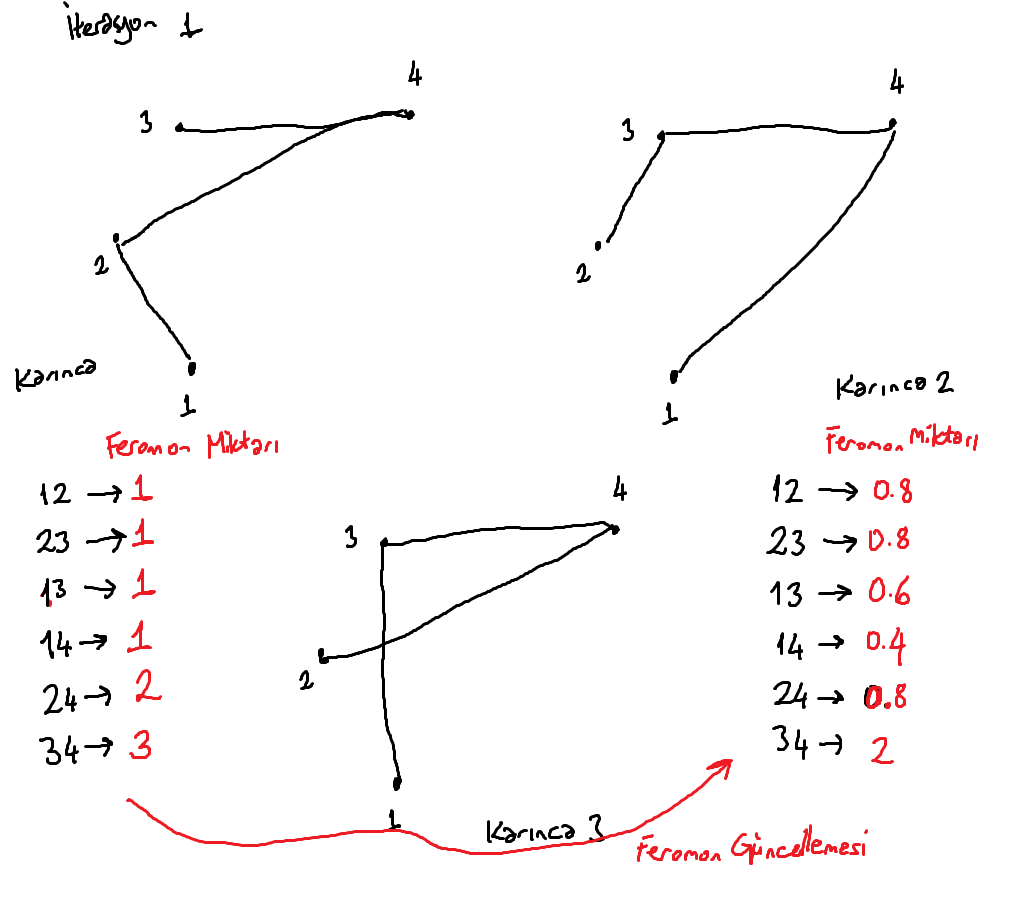 İterasyon 1
4
3
2
1
Karınca
4
3
2
1
Karınca 2
Feromon Miktarı
12 → 1
23 → 1
13 → 1
14 → 1
24 → 2
34 → 3
4
3
2
1
Karınca 3
Feromon Miktarı
12 → 0.8
23 → 0.8
13 → 0.6
14 → 0.4
24 → 0.8
34 → 2
Feromon Güncellemesi